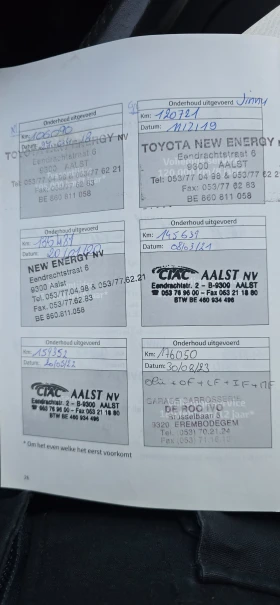 Jinny
Onderhoud uitgevoerd
Km: 106090
Datum:
TOYOTA NEW ENERGY NV
Eendrachtstraat 6
9300 AALST
Tel. 053/77 04 98 & 053/77 62 21
Fax. 053/77 62 83
BE 860 611 058
Onderhoud uitgevoerd
Km: 120721
Datum: 11/2/19
TOYOTA NEW ENERGY NV
Eendrachtstraat 6
9300 AALST
Tel: 053/77 04 98 & 053/77 62 21
Fax: 053/77 62 83
BE 860 611 058
Onderhoud uitgevoerd
Km:
Datum: 20/01/20
NEW ENERGY NV
Eendrachtstraat 6
9300 Aalst
Tel. 053/77.04.98 & 053/77.62.21
Fax. 053/77.62.83
BE 860.611.058
Onderhoud uitgevoerd
Km: 145631
Datum: 08/03/21
CIAC AALST NV
Eendrachtstr. 2 - B-9300 AALST
☎ 053 76 96 00 - Fax 053 21 18 80
BTW BE 460 934 496
Onderhoud uitgevoerd
Km: 159352
Datum:
CIAC AALST NV
Eendrachtstr. 2 - B-9300 AALST
☎ 053 76 96 00 - Fax 053 21 18 80
BTW BE 460 934 496
Onderhoud uitgevoerd
Km: 176050
Datum: 30/02/23
+ OF + LF + IF +
GARAGE CARROSSERIE
DE ROO IVO
Brusselbaan
9320 EREMBODEGEM
Tel. 053/70.21.24
* Om het even welke het eerst voorkomt